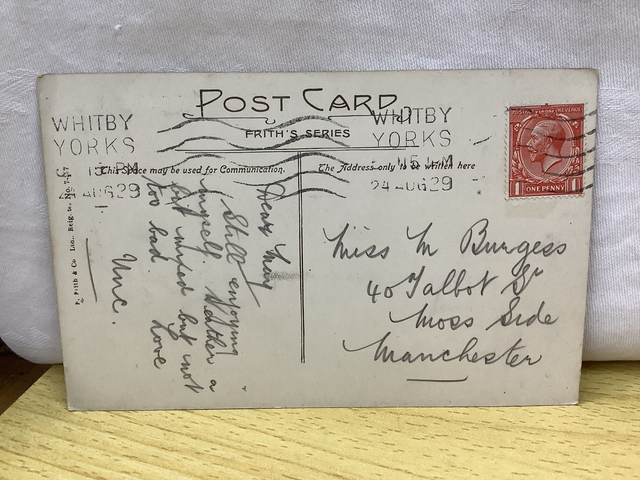 POST CARD
FRITH'S SERIES
WHITBY
YORKS
PM
24 AUG 29
WHITBY
YORKS
24 AUG 29
This Space may be used for Communication.
The Address only to be Written here
POSTAGE REVENUE
1 ONE PENNY 1
Dear May
Still enjoying
myself. Weather a
bit mixed but not
too bad. Love
Unc.
Miss M Burgess
40 Talbot St
Moss Side
Manchester
F. Frith & Co Ltd., Reigate. No.